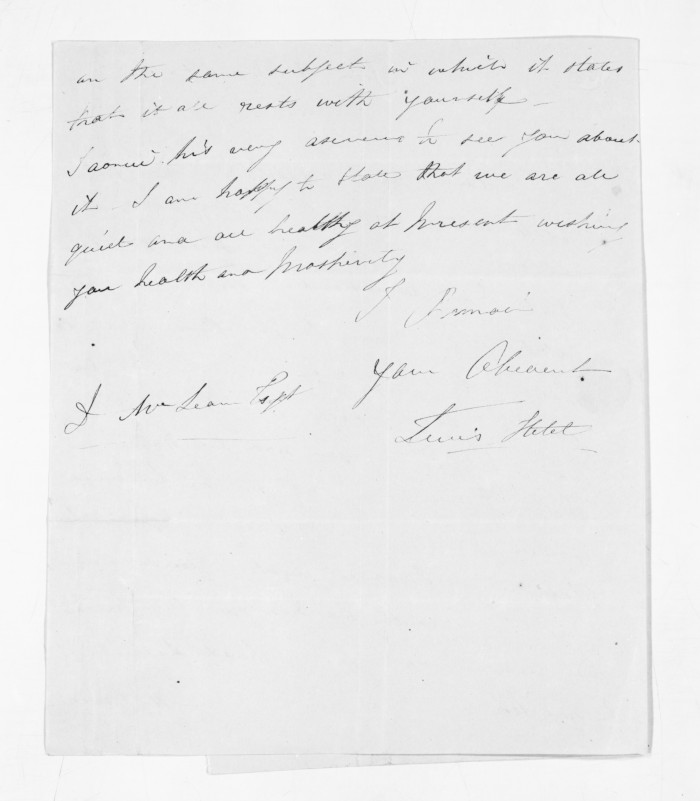 on the same subject in which it states
that it all rests with yourself
his very to see you about
it. I am happy to state that we are all
quiet and all healthy at present wishing
you health and prosperity
I Remain
Your Obedient
D McLean Esqr
Lewis Hetet